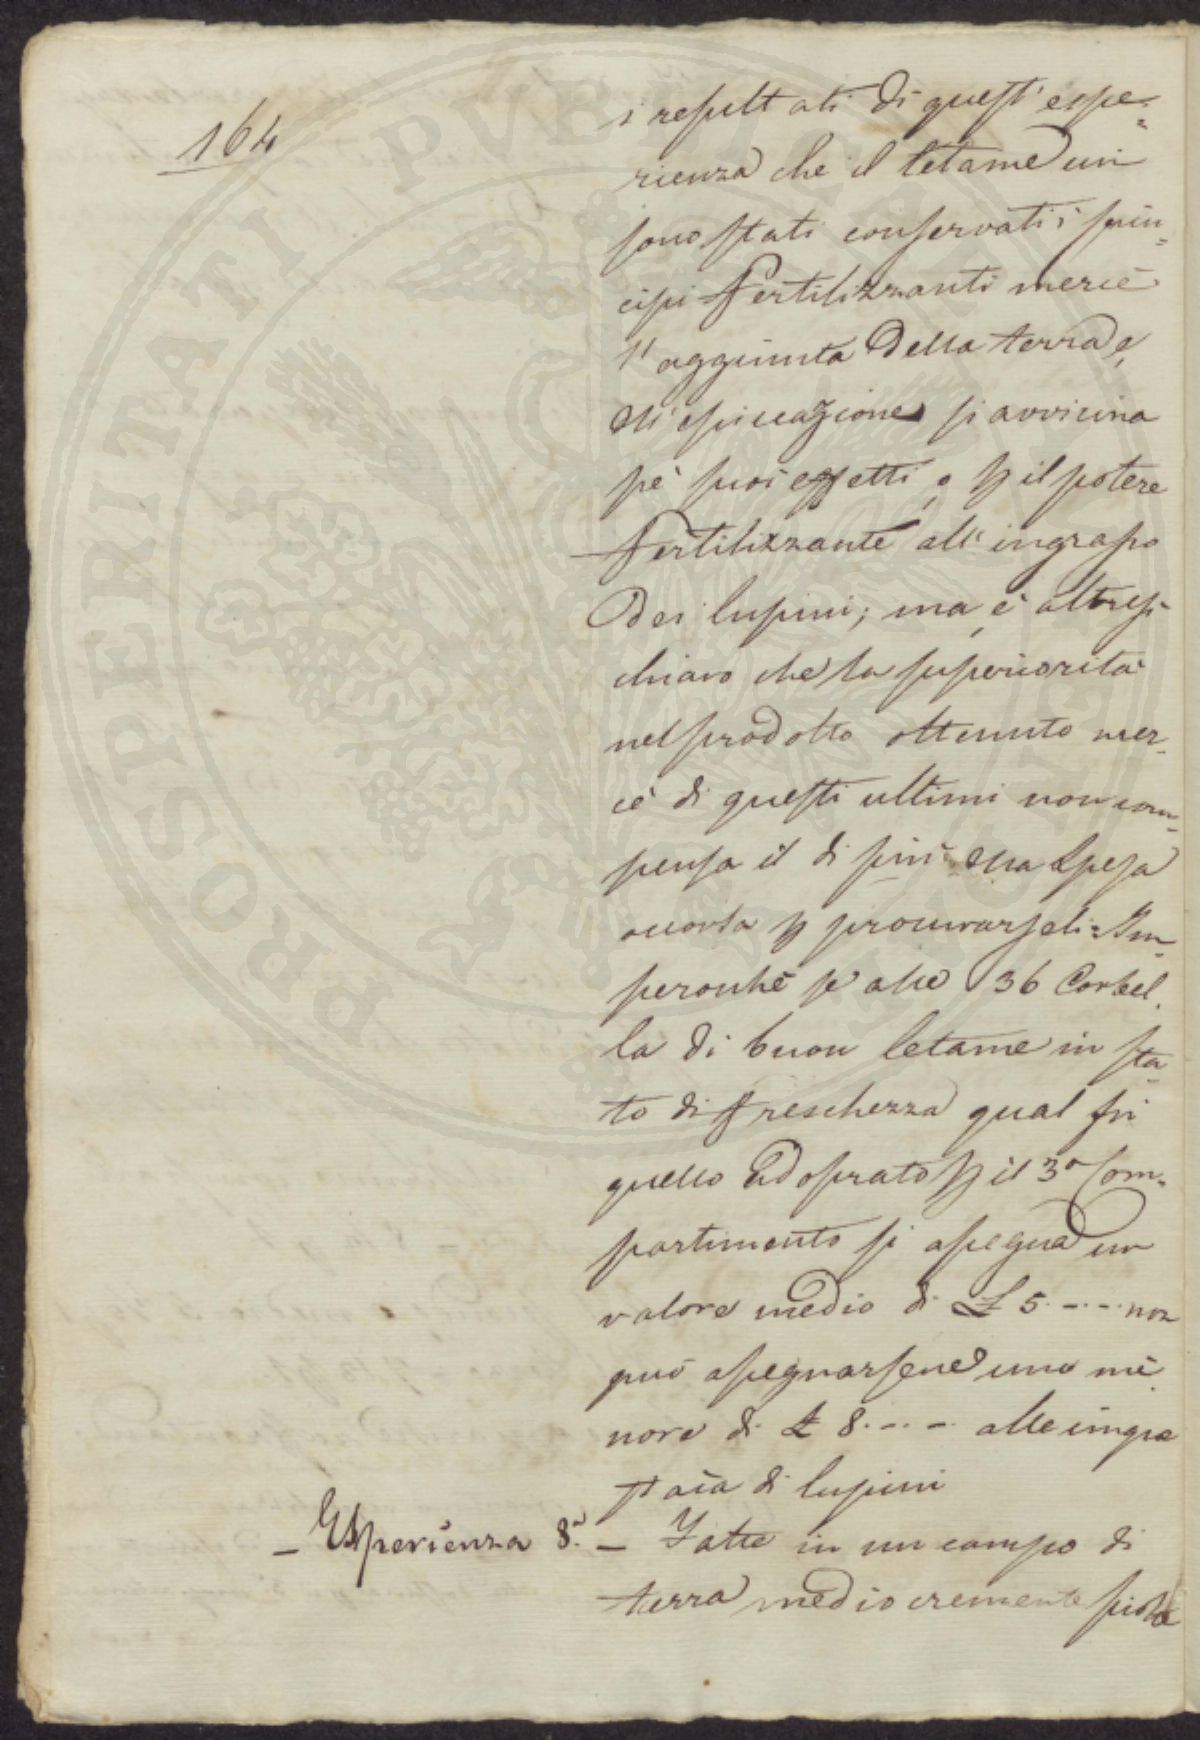 164
i resultati di quest' espe=
rienza che il letame cui
sono stati conservati i prin=
cipi fertilizzanti mercè
l'aggiunta della terra e
l'essiccazione si avvicina
pe' suoi effetti, e p il potere
fertilizzante all' ingrasso
dei lupini; ma è altresi
chiaro che la superiorità
nel prodotto ottenuto mer=
cè di questi ultimi non com=
pensa il di più della spesa
occorsa p procurarseli: Im=
perocchè se alle 36 Corbel
la di buon letame in sta
to di freschezza qual fù
quello adoprato p il 3º Com=
partimento si assegna un
valore medio di £ 5. -.-. non
può assegnarsene uno mi
nore di £ 8.-.- alle ingra
ssaia di lupini
- Esperienza 8.ª - Fatta in un campo di
terra mediocremente
PROSPERITATI PVBLICAE